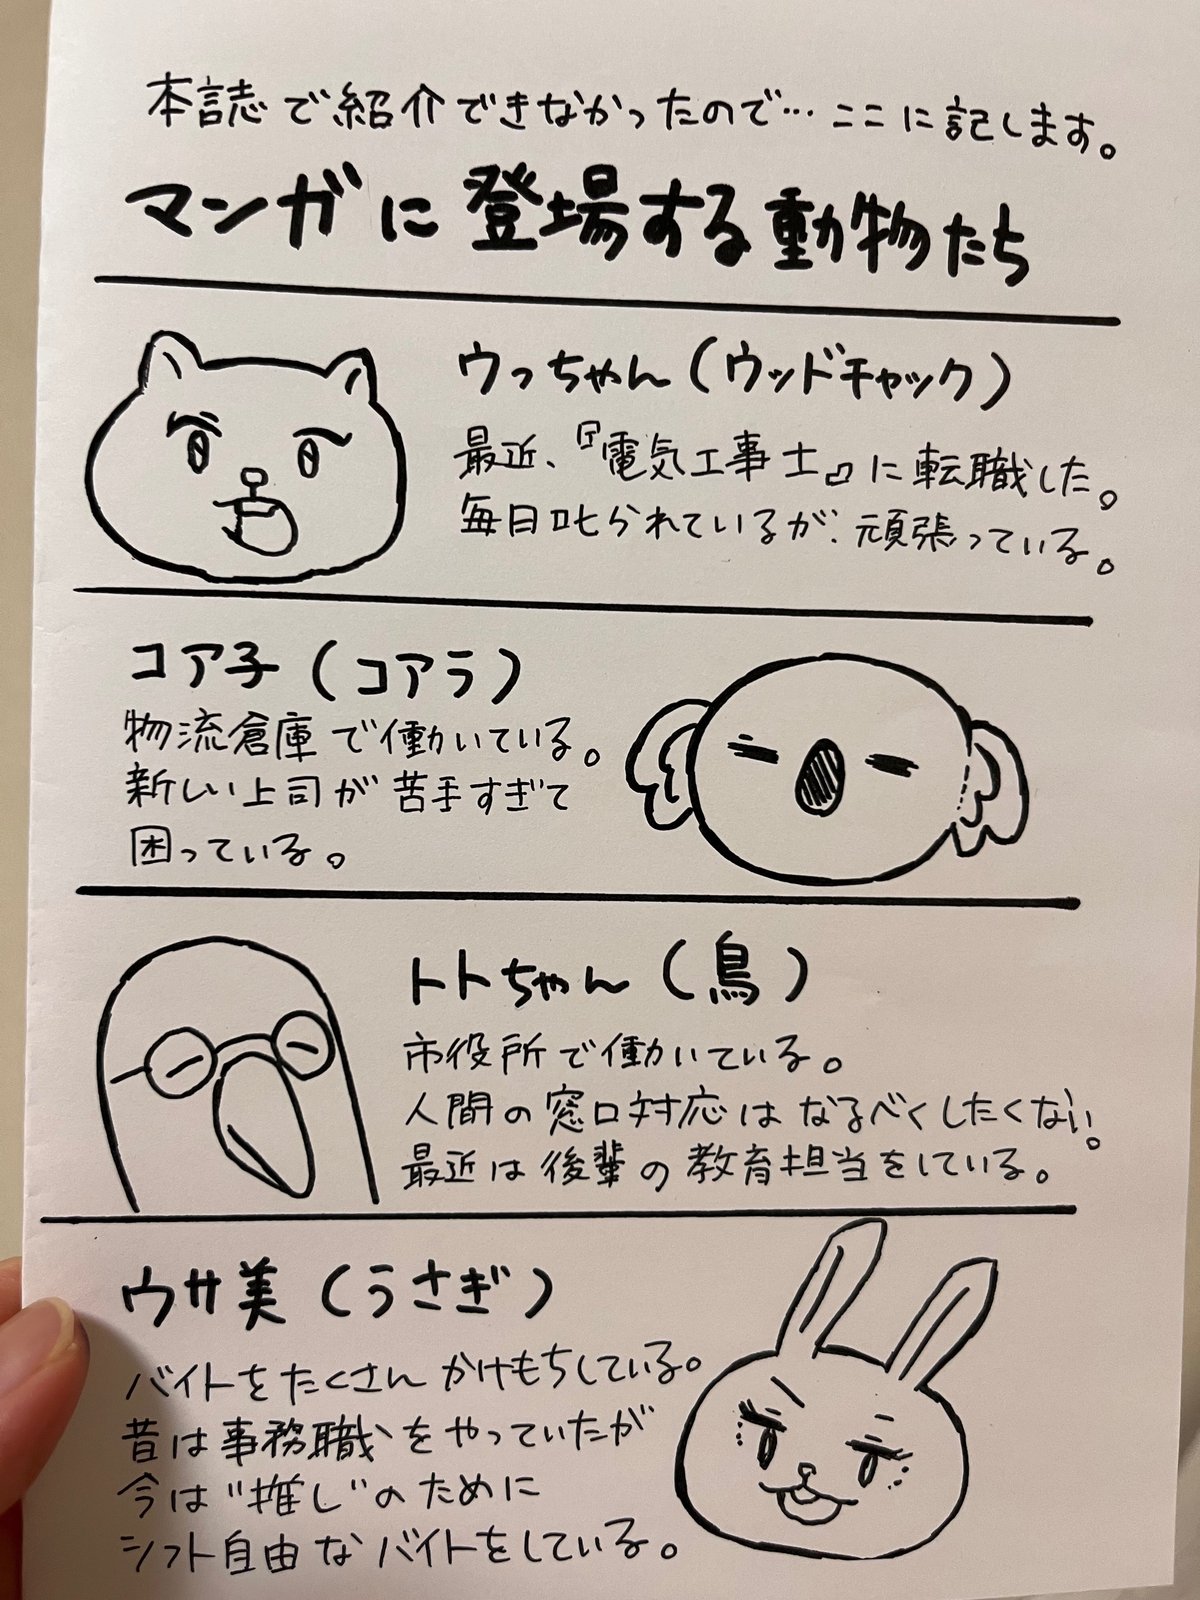 本誌で紹介できなかったので…ここに記します。
マンガに登場する動物たち
ウっちゃん(ウッドチャック)
最近、『電気工事士』に転職した。
毎日叱られているが、頑張っている。
コア子(コアラ)
物流倉庫で働いている。
新しい上司が苦手すぎて
困っている。
トトちゃん(鳥)
市役所で働いている。
人間の窓口対応はなるべくしたくない。
最近は後輩の教育担当をしている。
ウサ美(うさぎ)
バイトをたくさんかけもちしている。
昔は事務職をやっていたが
今は"推し"のために
シフト自由なバイトをしている。